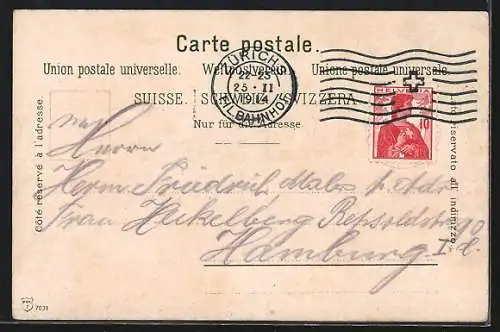 Carte postale.
Union postale universelle. Weltpostverein. Unione postale universale
SUISSE. SCHWEIZ. SVIZZERA.
Nur für die Adresse
Côté réservé à l'adresse.
riservato all' indirizzo
ZÜRICH
22-23
25·II
1914
BAHNHOF
HELVETIA
10
Herrn
Herrn Friedrich
Frau Heckelberg Repsoldstr. 90
Hamburg I.
7031